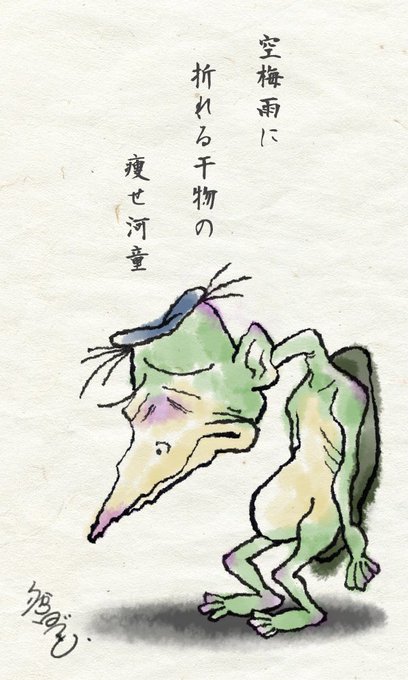 空梅雨に
折れる干物の
痩せ河童